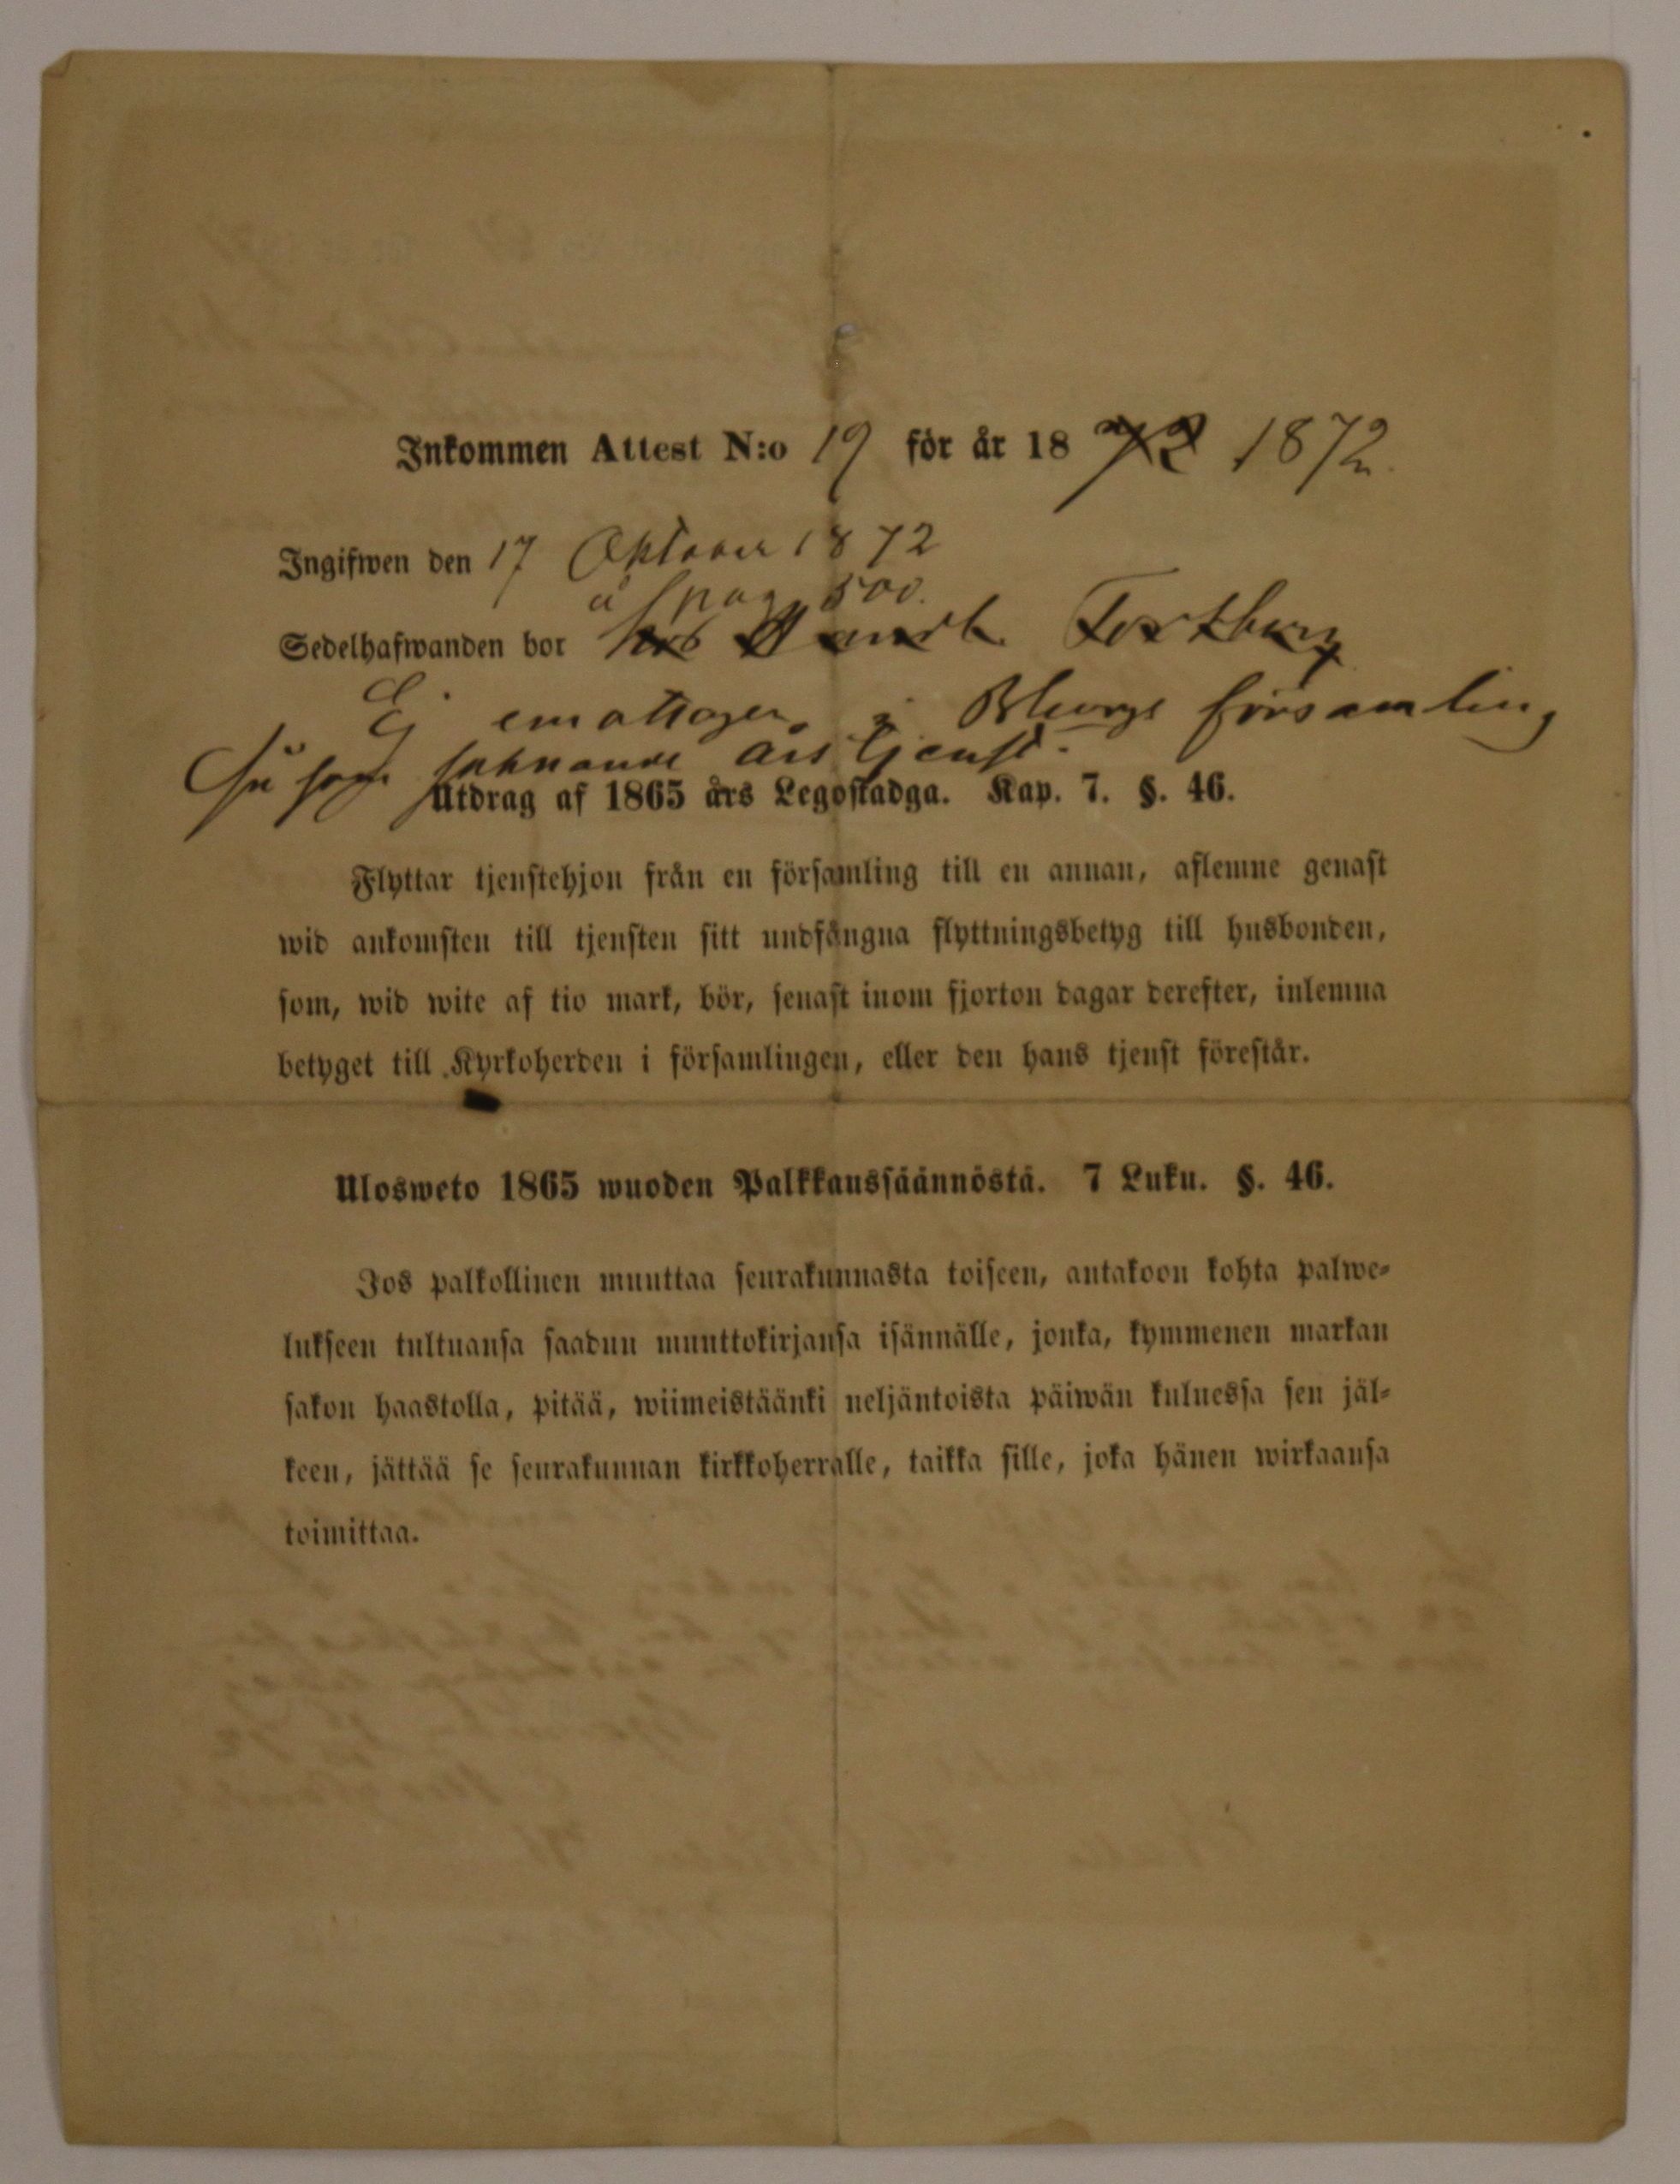 Inkommen Attest N:o 19 för år 18 72 1872.
Ingifwen den 17 Oktober 1872
å pag. 500.
Sedelhafwanden bor hos Forsbury
Ej emottagen i Bborgs församling
såsom saknande årstjenst.
Utdrag af 1865 års Legostadga. Kap. 7. §. 46.
Flyttar tjenstehjon från en församling till en annan, aflemne genast
wid ankomsten till tjensten sitt undfångna flyttningsbetyg till husbonden,
som, wid wite af tio mark, bör, senast inom fjorton dagar derefter, inlemna
betyget till Kyrkoherden i församlingen, eller den hans tjenst förestår.
Ulosweto 1865 wuoden Palkkaussäännöstä. 7 Luku. §. 46.
Jos palkollinen muuttaa seurakunnasta toiseen, antakoon kohta palwe-
lukseen tultuansa saadun muuttokirjansa isännälle, jonka, kymmenen markan
sakon haastolla, pitää, wiimeistäänki neljäntoista päiwän kuluessa sen jäl-
keen, jättää se seurakunnan kirkkoherralle, taikka sille, joka hänen wirkaansa
toimittaa.